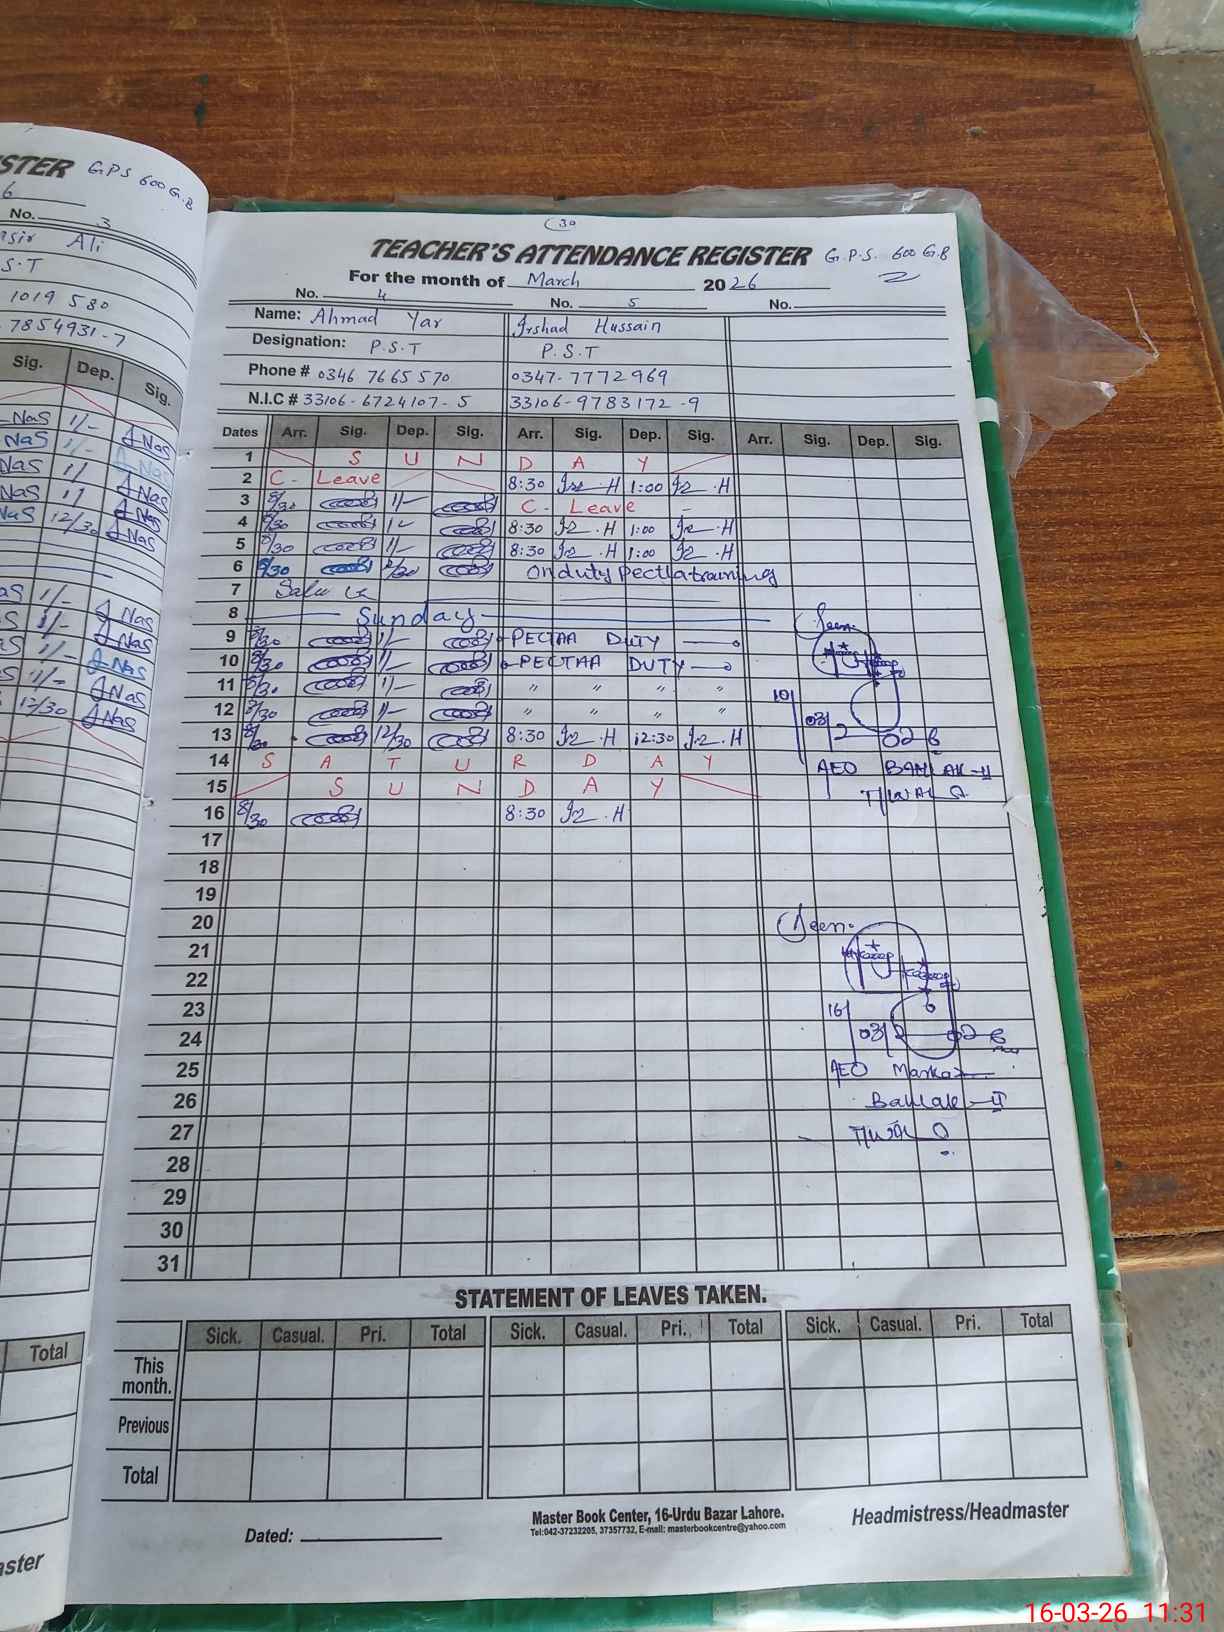 STER G.P.S 600 G.B
6
No. 3
asir Ali
S.T
1019 580
7854931-7
Sig. Dep. Sig.
NaS 1/- NaS
NaS 1/- NaS
NaS 1/ NaS
NaS 1/ NaS
NaS 12/30 NaS
aS 1/- NaS
S 1/- NaS
aS 1/- NaS
S 1/- NaS
12/30 NaS
Total
aster
30
TEACHER'S ATTENDANCE REGISTER G.P.S. 600 G.B
For the month of March 2026 2
No. 4 No. 5 No.
Name: Ahmad Yar Irshad Hussain
Designation: P.S.T P.S.T
Phone # 0346 7665570 0347-7772969
N.I.C # 33106-6724107-5 33106-9783172-9
Dates Arr. Sig. Dep. Sig. Arr. Sig. Dep. Sig. Arr. Sig. Dep. Sig.
1 S U N D A Y
2 C. Leave 8:30 H 1:00 H
3 8/30 1/- C. Leave
4 8/30 8:30 H 1:00 H
5 8/30 1/- 8:30 H 1:00 H
6 8/30 12/30 on duty Pectta training
7
8 Sunday Seen.
9 8/30 1/- PECTAA DUTY
10 8/30 1/- PECTAA DUTY
11 8/30 1/- " " " "
12 8/30 1/- " " " "
10/ 03/ 2026
13 8/30 12/30 8:30 H 12:30 H
14 S A T U R D A Y AEO BAHLAK-II
15 S U N D A Y T/WALA
16 8/30 8:30 H
17
18
19
20 Seen.
21
22
23 16/
24 03/ 2026
25 AEO Markaz
26 Bahlak-II
27 T/WALA
28
29
30
31
STATEMENT OF LEAVES TAKEN.
Sick. Casual. Pri. Total Sick. Casual. Pri. Total Sick. Casual. Pri. Total
This month.
Previous
Total
Master Book Center, 16-Urdu Bazar Lahore.
Tel:042-37232205, 37357732, E-mail: masterbookcentre@yahoo.com
Headmistress/Headmaster
Dated:
16-03-26 11:31